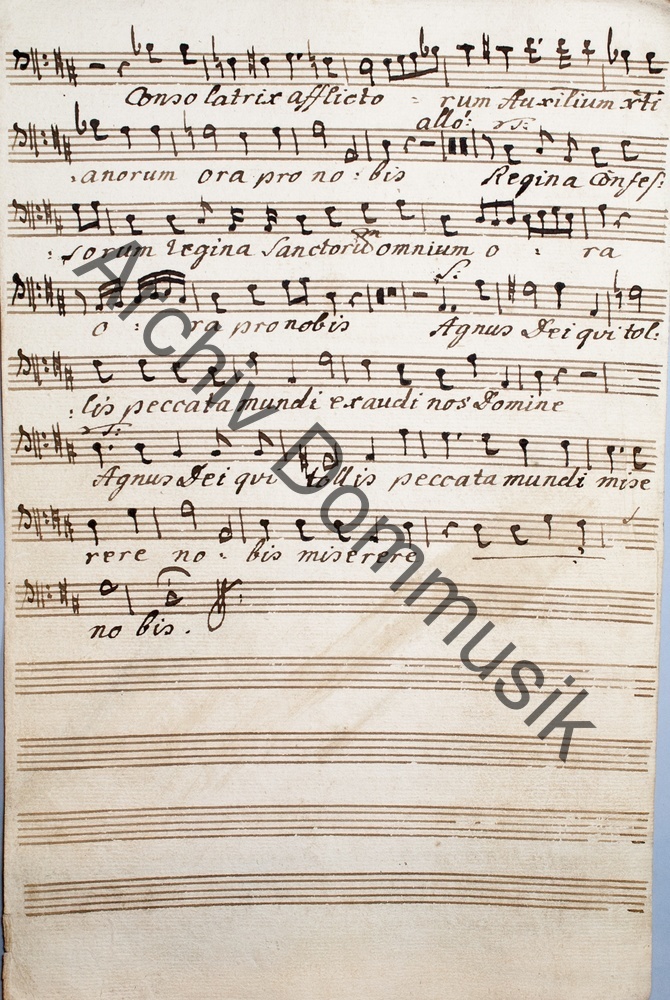 Consolatrix afflicto - rum Auxilium xti
allo: s:
:anorum ora pro no: bis Regina Confes:
: sorum regina Sanctorum omnium o : ra
s:
o : ra pro nobis Agnus Dei qui tol:
:lis peccata mundi exaudi nos Domine
Agnus Dei qui tollis peccata mundi mise
rere no: bis miserere
no bis.
Archiv Dommusik